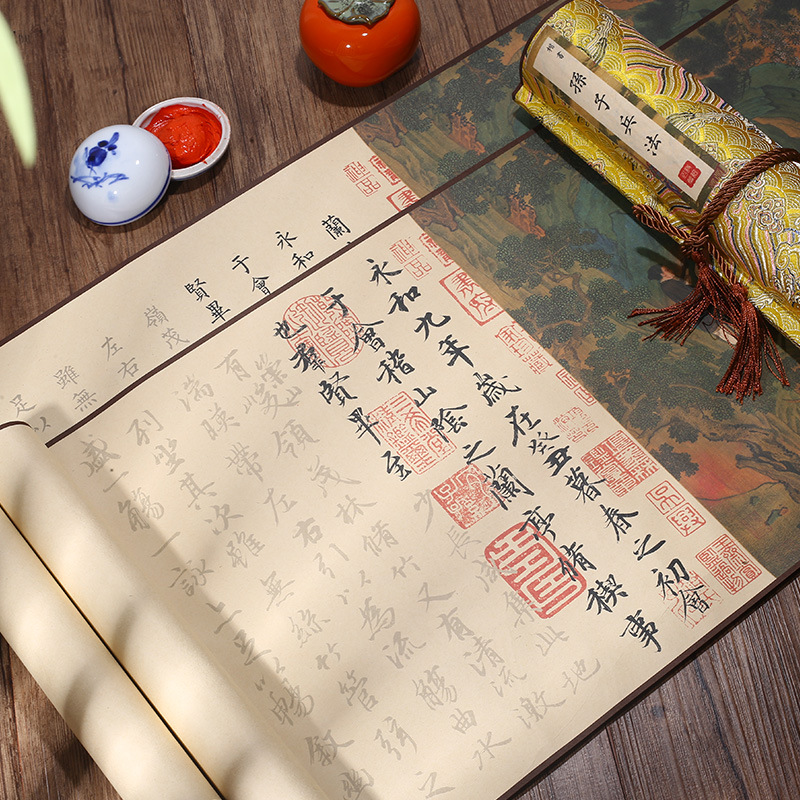 楷書
孫子兵法
蘭
永和
于會
賢畢
嶺茂
左右
雖無
足以
永和九年歲在癸丑暮春之初會
于會稽山陰之蘭亭脩禊事
也羣賢畢至少長咸集此地
有崇山峻領茂林脩竹又有清流激
湍暎帶左右引以為流觴曲水
列坐其次雖無絲竹管弦之
盛一觴一詠亦足以暢敘幽